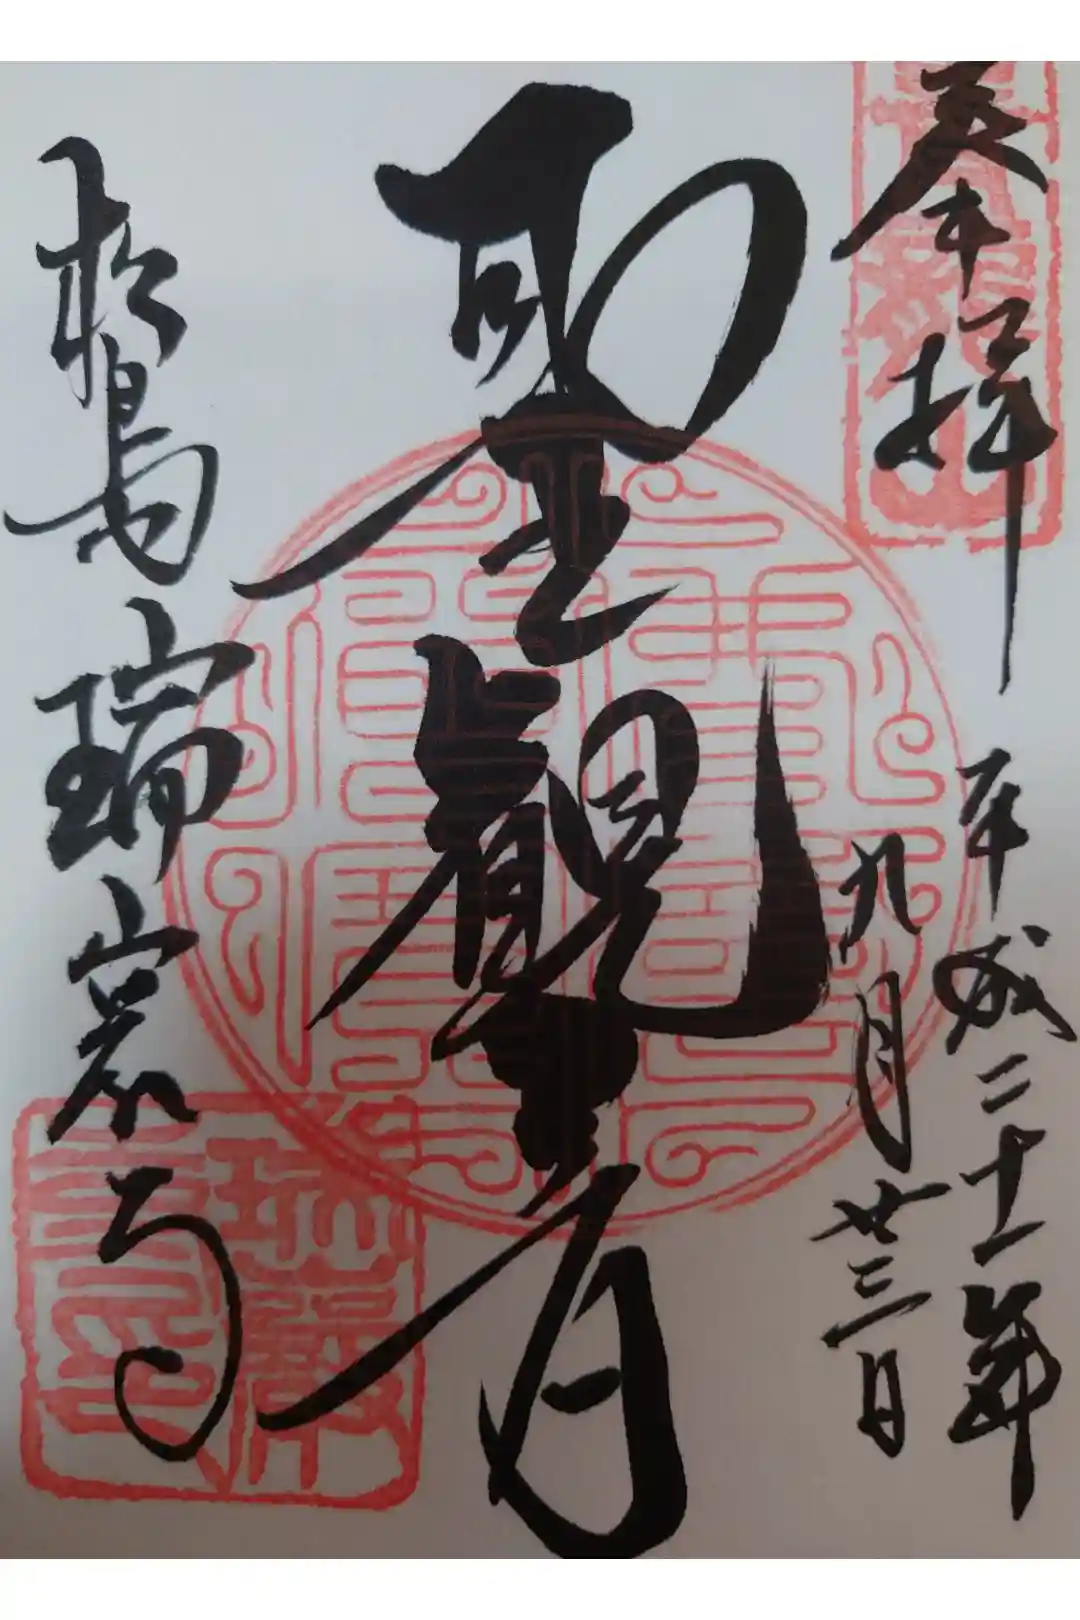 奉拝
平成二十一年
九月廿三日
聖観音
松島瑞岩寺